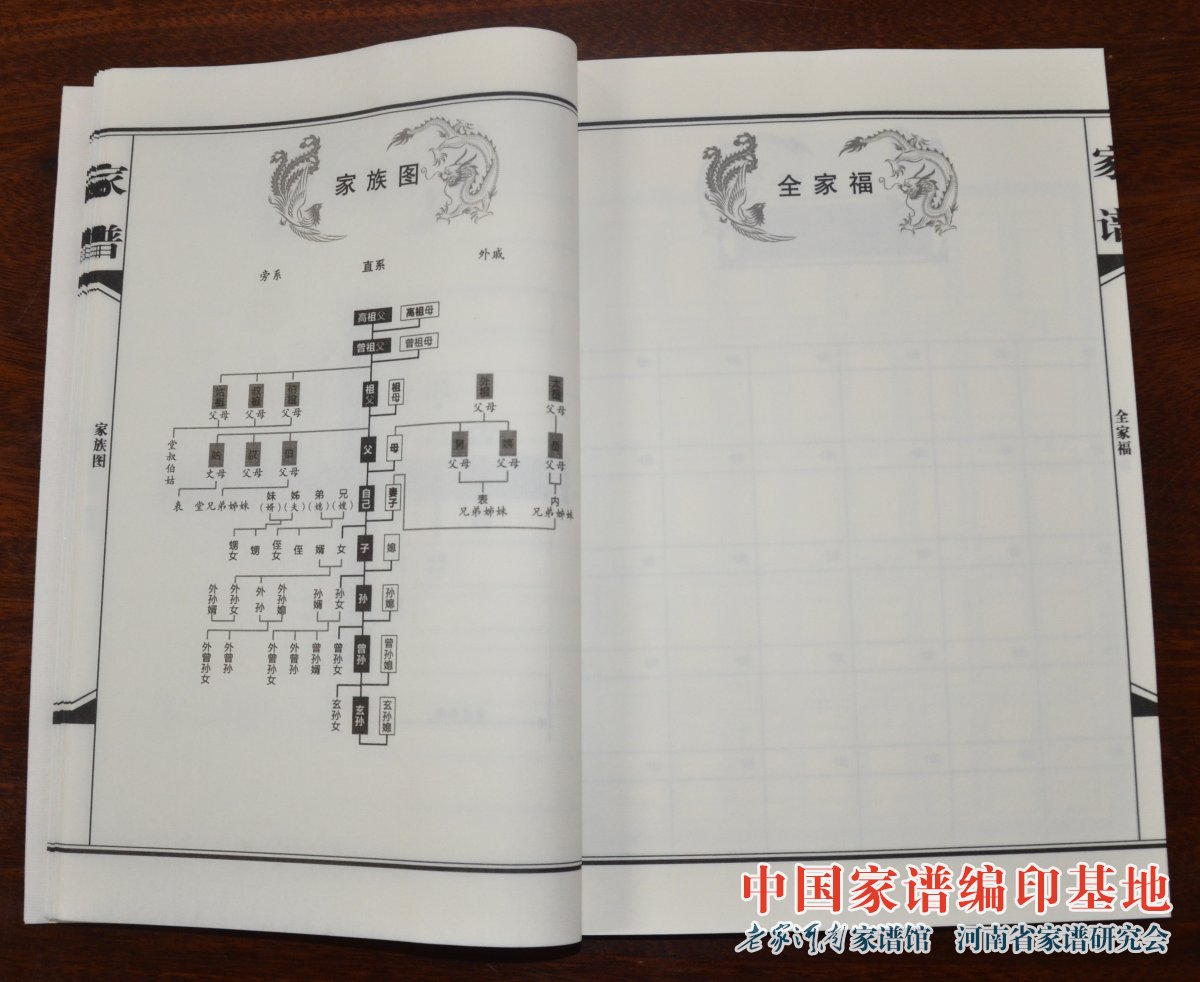 家谱
家族图
家族图
旁系
直系
外戚
高祖父
高祖母
曾祖父
曾祖母
姑祖
父母
叔祖
父母
伯祖
父母
祖父
祖母
外祖
父母
太岳
父母
堂叔伯姑
姑
丈母
叔
父母
伯
父母
父
母
舅
父母
姨
父母
岳
父母
表
堂兄弟姊妹
妹
(婿)
姊
(夫)
弟
(媳)
兄
(嫂)
自己
妻子
表
兄弟姊妹
内
兄弟姊妹
甥女
甥
侄女
侄
婿
女
子
媳
外孙婿
外孙女
外孙
外孙媳
孙婿
孙女
孙
孙媳
外曾孙女
外曾孙
外曾孙女
外曾孙
曾孙婿
曾孙女
曾孙
曾孙媳
玄孙女
玄孙
玄孙媳
全家福
家谱
全家福
中国家谱编印基地
老家河南家谱馆 河南省家谱研究会